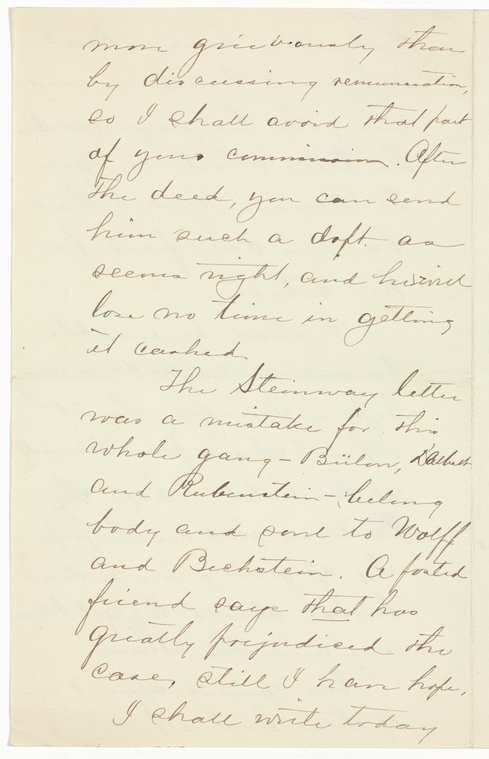 more grievously than
by discussing remuneration,
so I shall avoid that part
of your commission. After
the deed, you can send
him such a draft as
seems right, and he will
lose no time in getting
it cashed.
The Steinway letter
was a mistake for this
whole gang - Bülow, D'albert
and Rubenstein - belong
body and soul to Wolff
and Bechstein. A
friend says that has
greatly prejudiced the
case, still I have hope.
I shall write today